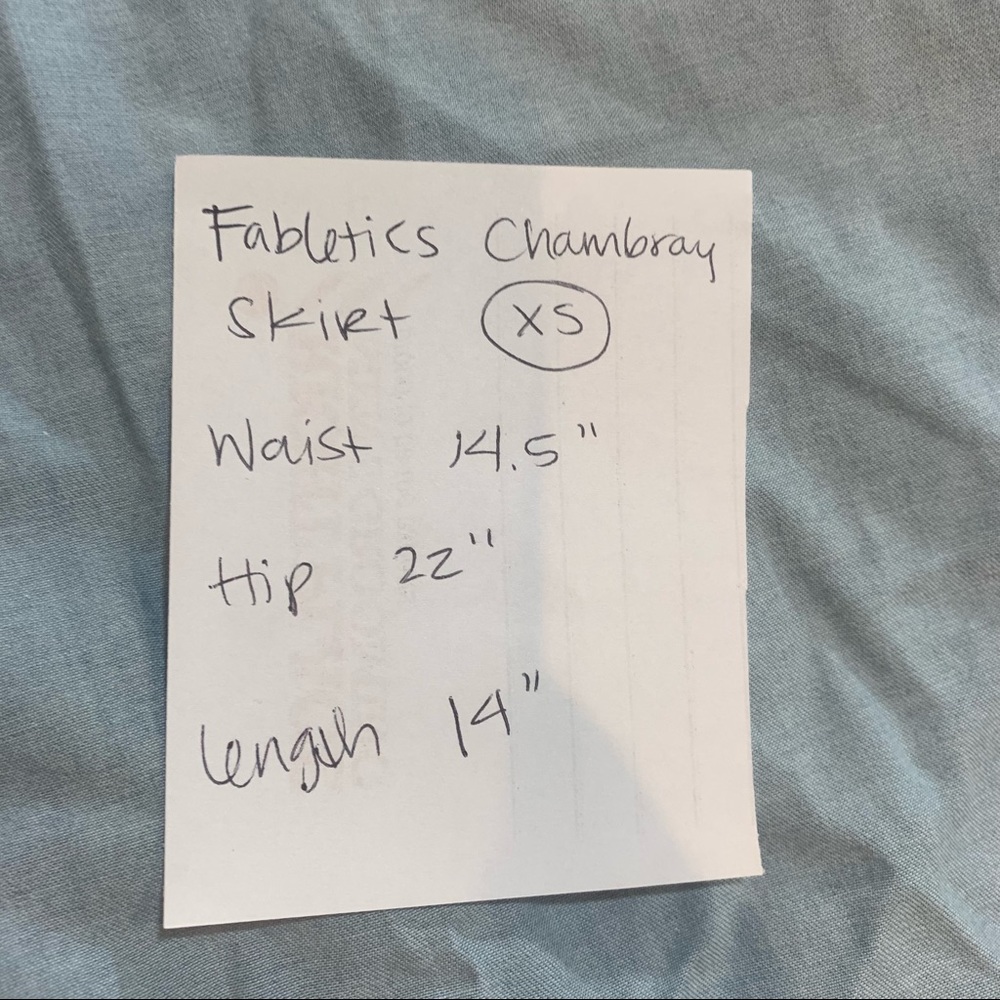 Fabletics Chambray
Skirt XS
Waist 14.5"
Hip 22"
Length 14"